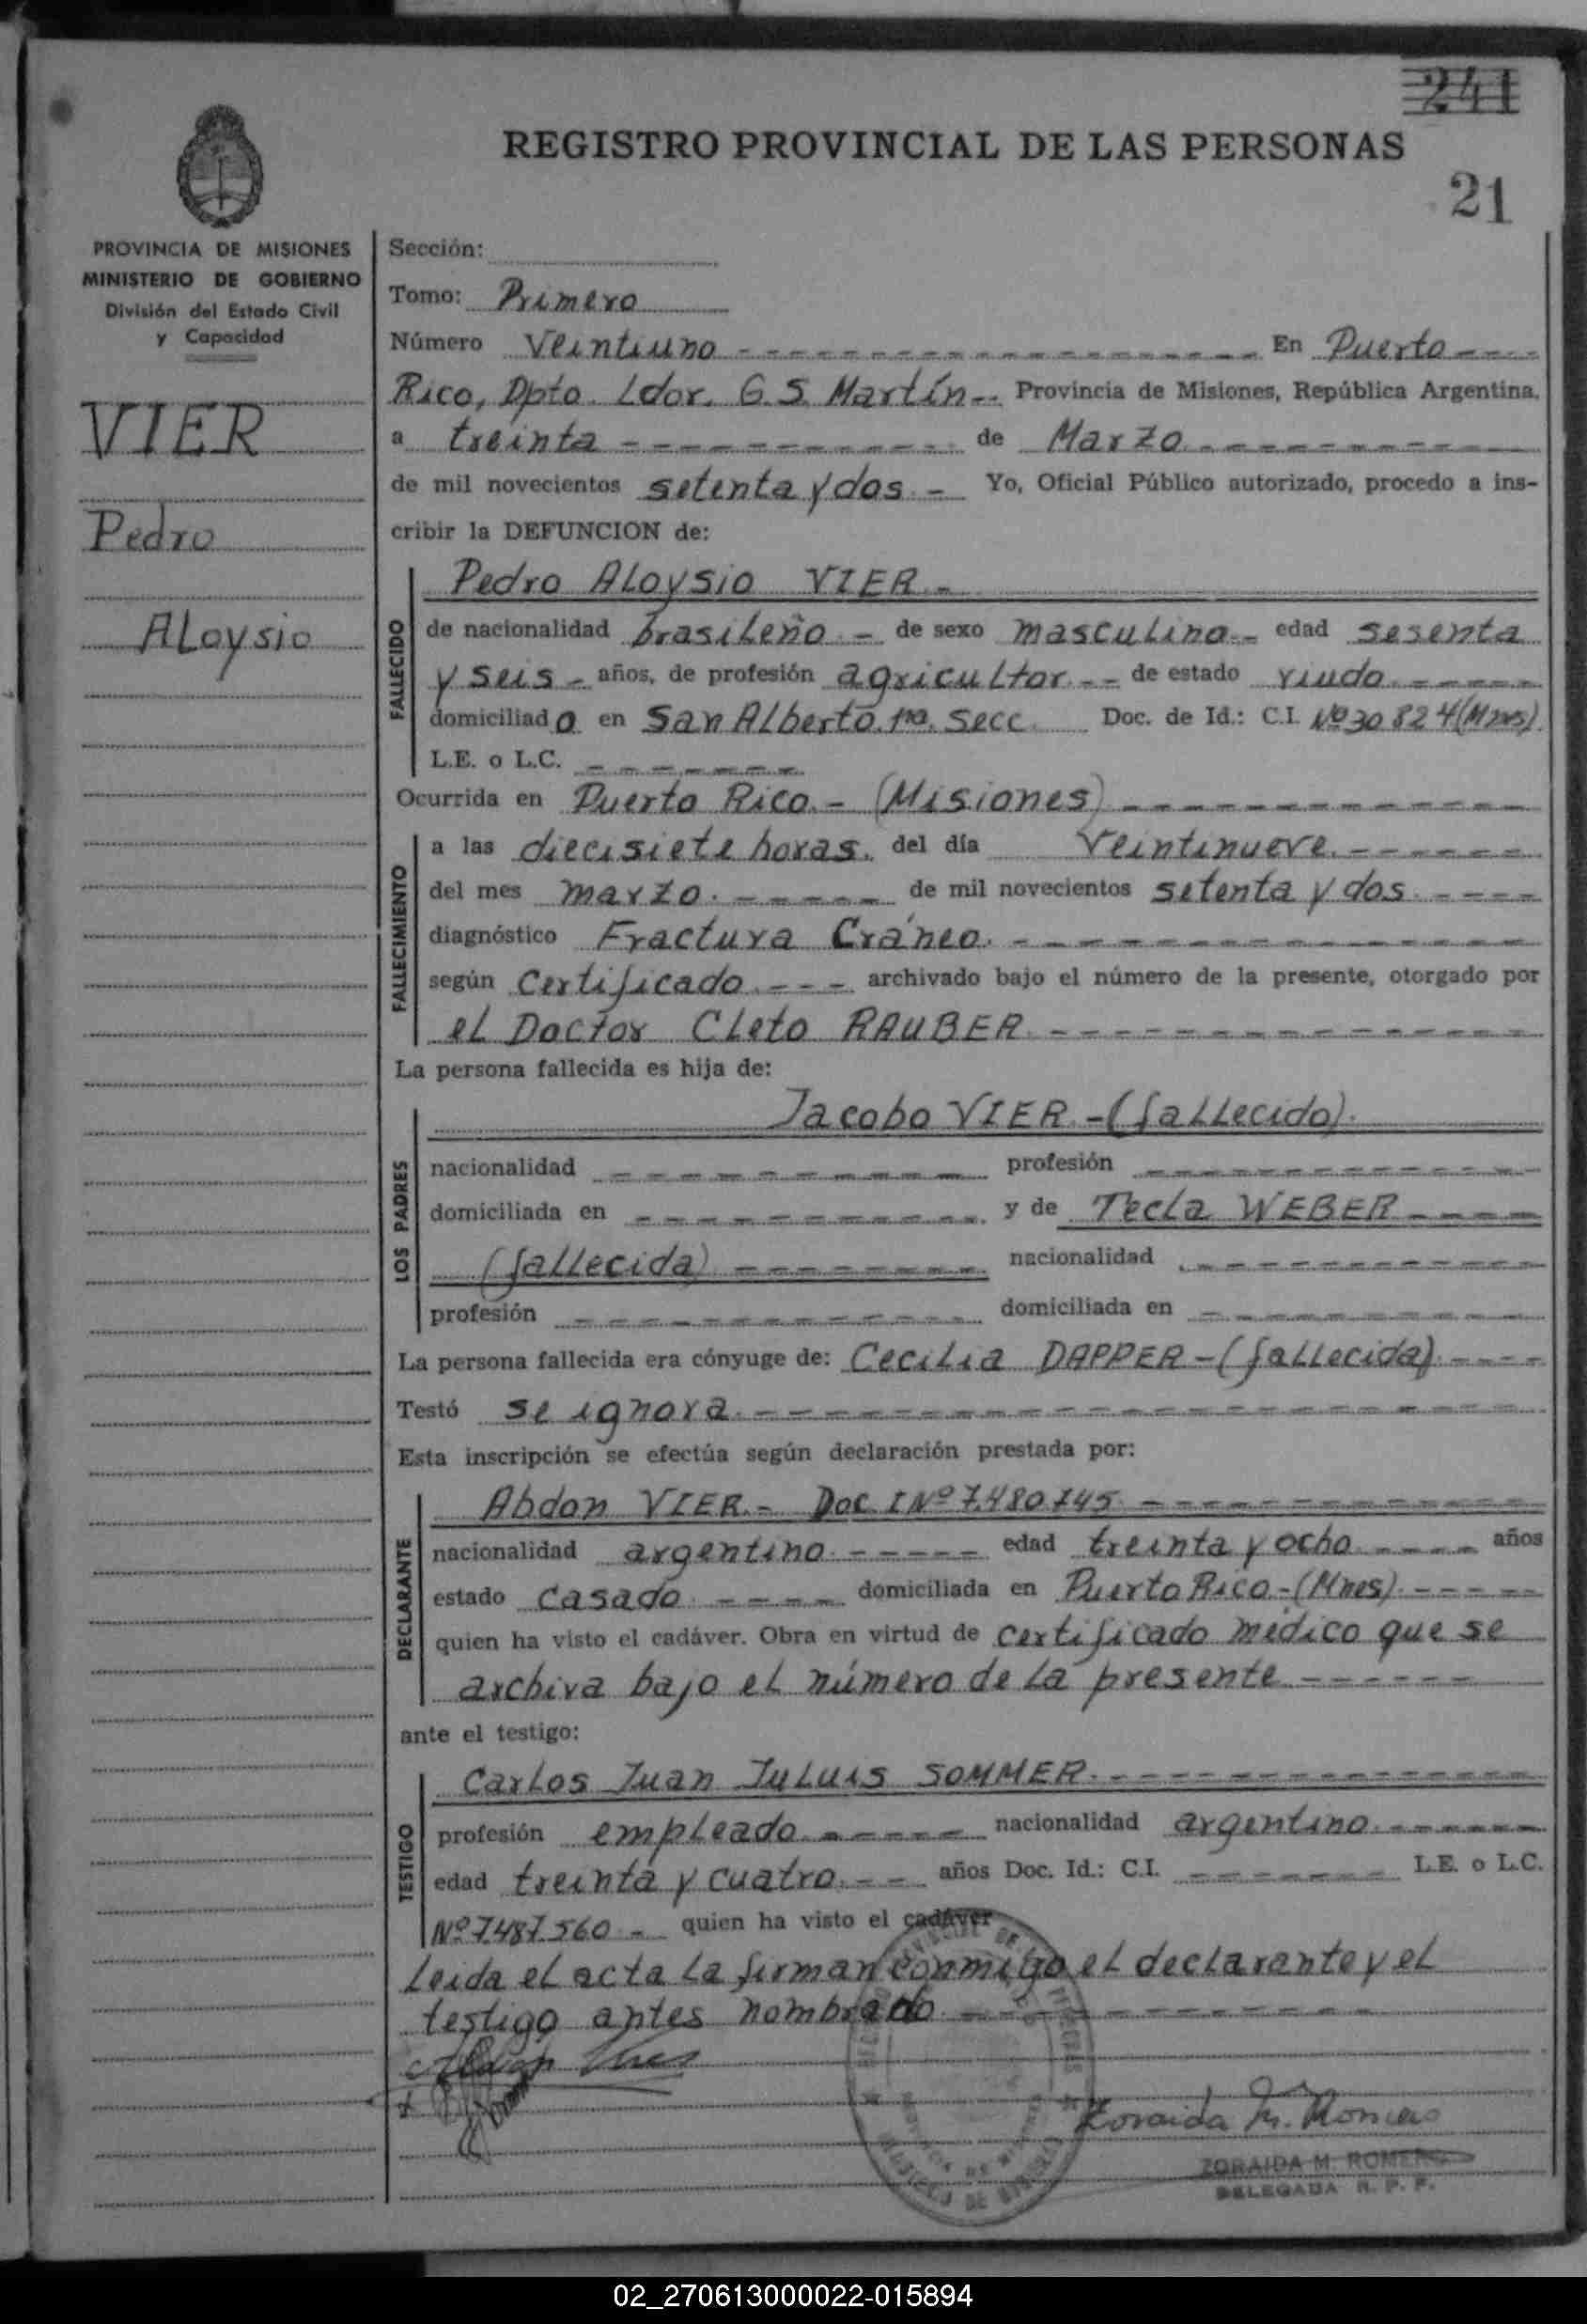 241
REGISTRO PROVINCIAL DE LAS PERSONAS
21
PROVINCIA DE MISIONES
MINISTERIO DE GOBIERNO
División del Estado Civil
y Capacidad
VIER
Pedro
ALoysio
Sección:
Tomo: Primero
Número Veintiuno - En Puerto -
Rico, Dpto. Ldor. G. S. Martín -- Provincia de Misiones, República Argentina,
a treinta - de Marzo -
de mil novecientos setenta y dos - Yo, Oficial Público autorizado, procedo a ins-
cribir la DEFUNCION de:
FALLECIDO
Pedro ALoysio VIER -
de nacionalidad brasileño - de sexo masculino - edad sesenta
y seis - años, de profesión agricultor -- de estado viudo -
domiciliado en San Alberto 1ra. Secc. Doc. de Id.: C.I. Nº 30824 (Mnes).
L.E. o L.C. -
Ocurrida en Puerto Rico - (Misiones) -
FALLECIMIENTO
a las diecisiete horas. del día Veintinueve -
del mes marzo - de mil novecientos setenta y dos -
diagnóstico Fractura Cráneo -
según Certificado --- archivado bajo el número de la presente, otorgado por
el Doctor Cleto RAUBER -
La persona fallecida es hija de:
LOS PADRES
Jacobo VIER - (fallecido).
nacionalidad - profesión -
domiciliada en - y de Tecla WEBER -
(fallecida) - nacionalidad -
profesión - domiciliada en -
La persona fallecida era cónyuge de: Cecilia DAPPER - (fallecida) -
Testó se ignora -
Esta inscripción se efectúa según declaración prestada por:
DECLARANTE
Abdon VIER - Doc I Nº 7.480.745 -
nacionalidad argentino - edad treinta y ocho - años
estado casado - domiciliada en Puerto Rico - (Mnes) -
quien ha visto el cadáver. Obra en virtud de certificado médico que se
archiva bajo el número de la presente -
ante el testigo:
TESTIGO
Carlos Juan Juluis SOMMER -
profesión empleado - nacionalidad argentino -
edad treinta y cuatro - años Doc. Id.: C.I. - L.E. o L.C.
Nº 7.487.560 - quien ha visto el cadáver
Leida el acta la firman conmigo el declarante y el
testigo antes nombrado -
Zoraida M. Romero
ZORAIDA M. ROMERO
DELEGADA R. P. P.
02_270613000022-015894